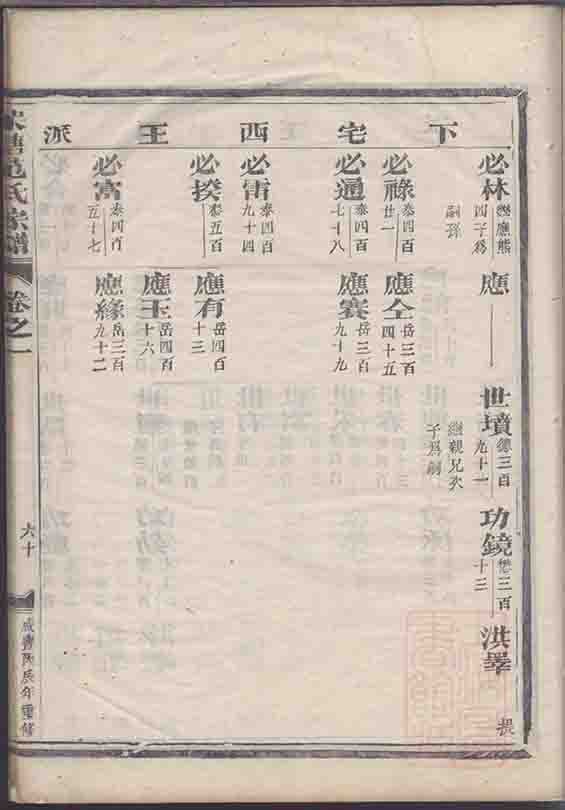 下宅西王派
必林
應
世墳
德三百
九十一
功鏡
懋三百
十三
洪羣
嗣孫
繼親兄次
子爲嗣
必祿
泰四百
廿一
應仝
岳三百
四十五
必通
泰四百
七十八
應賽
岳三百
九十九
必雷
泰四百
九十四
必揆
泰五百
應有
岳四百
十三
應玉
岳四百
十六
必富
泰四百
五十七
應緣
岳三百
九十二
范氏宗譜
卷之一
六十
咸豐丙辰年重修